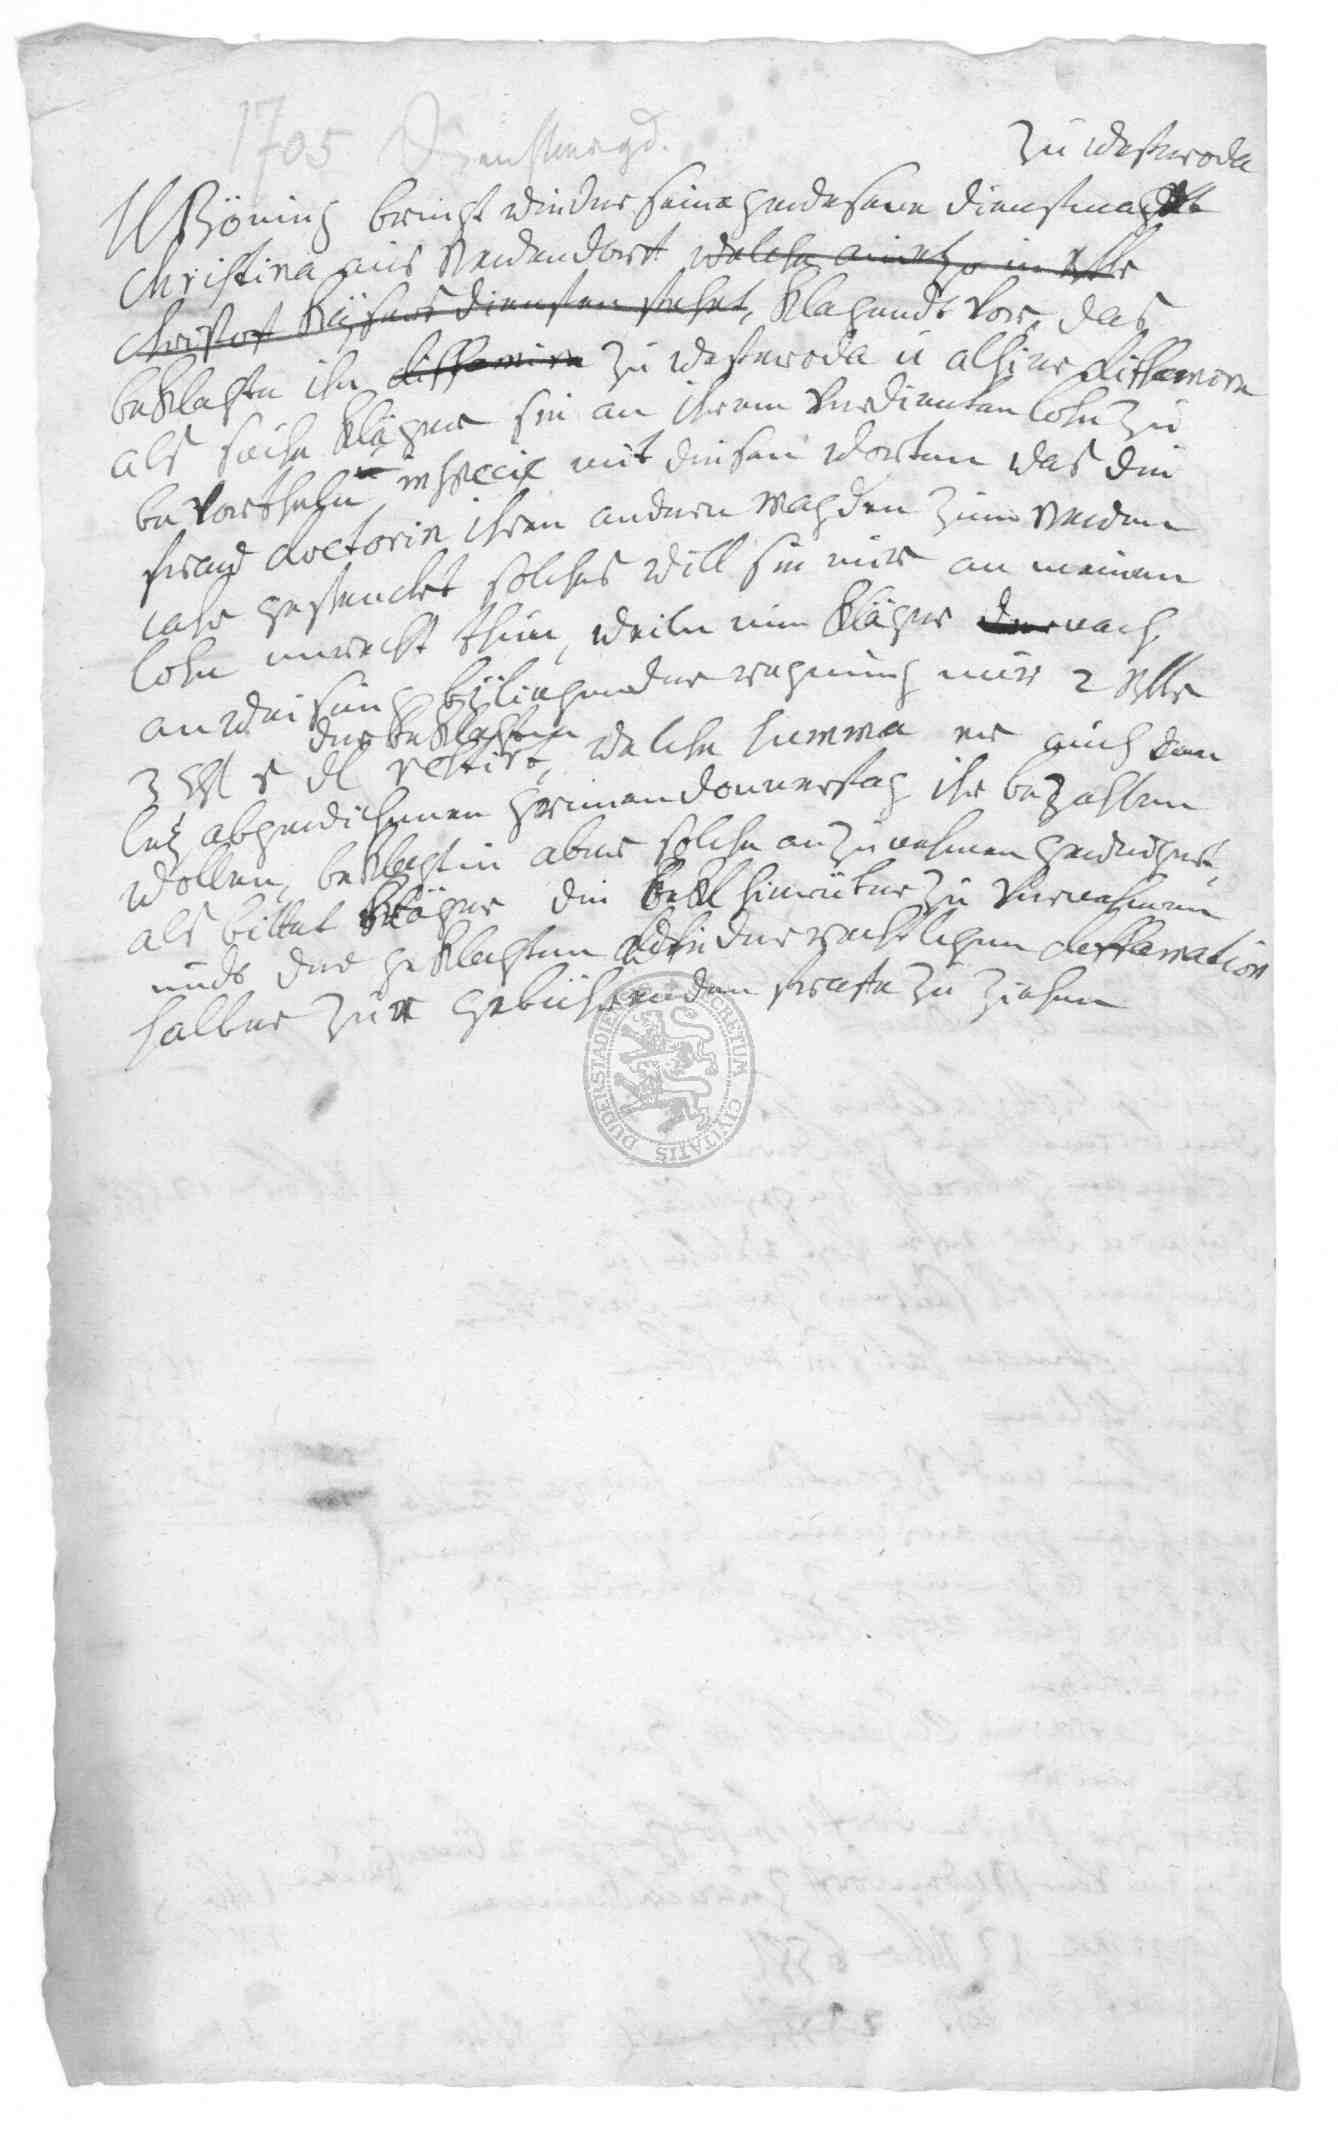 1705 Dienstmagd.
zu Westeroda
H Böning bringt wieder seine gewesene dienstmagdt
Christina aus Neuendorff welche anietzo in H
Christoff diensten stehet, klagendt vor, das
beklagte ihn diffamire zu westeroda u alhier diffamire
als solte kläger sie an ihrem verdienten lohn zu
bevortheln, inspecie mit diesen worten was die
fraw doctorin ihren andern mägden zum neuen
iahr geschenckt solches will sie mir an meinem
lohn unrecht thun, weiln nun kläger der nach
anweisung byliegender rechnung nur 2
der beklagten
3 restirt, welche summa er auch den
letz abgewichenen grünen donnerstag ihr bezahlen
wollen, beklagtin aber solche anzunehmen geweigert,
als bittet kläger die bekl hierüber zu vernehmen
undt der geklagten wiederrechtlichen deffamation
halber zur gebührenden straffe zu ziehen
SECRETUM CIVITATIS DUDERSTADIE